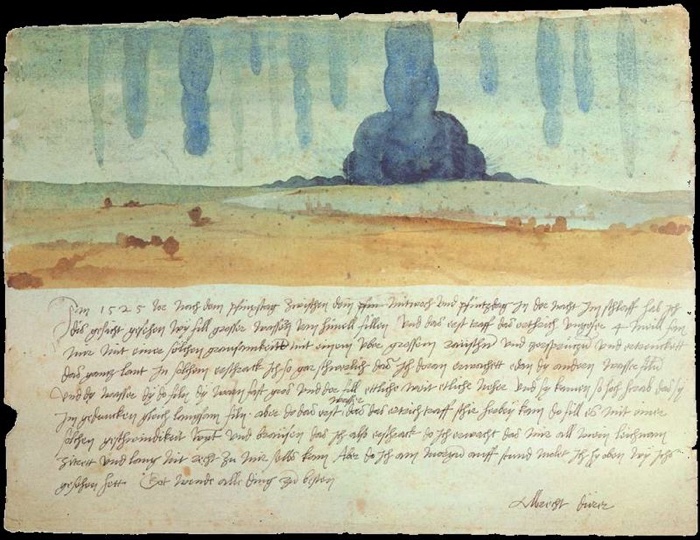 Im 1525 Jor nach dem pfinxstag zwischen dem mitwoch und pfintzdag in der nacht im schlaff hab ich
dis gesicht gesehen wy fill grosser wassern vom himell fillen Und das erst traff das erthrich ungefer 4 meill fan
mir mit einer sölchen grausamkeitt mit einem uber grossem raüschn und zersprützn und ertrenckett
das gantz lant In sölchem erschrack ich so gar schwerlich das ich doran erwachett e dan dy andern wasser filn
Und dy wasser dy do filn dy warn fast gros und der fill ettliche weit etliche neher und sy kamen so hoch herab das sy
im gedancken gleich langsam filn. aber do das erst wasser das das ertrich traff schir herbey kam do fill es mit einer
sölchen geschwindikeit wynt und braüsen das ich also erschrack do ich erwacht das mir all mein leichnam
zitrett und lang nit recht zu mir selbs kam Aber do ich am morgen auff stund molet ich hy oben wy ichs
gesehen hett Got wende alle ding zu besten
Albrecht dürer